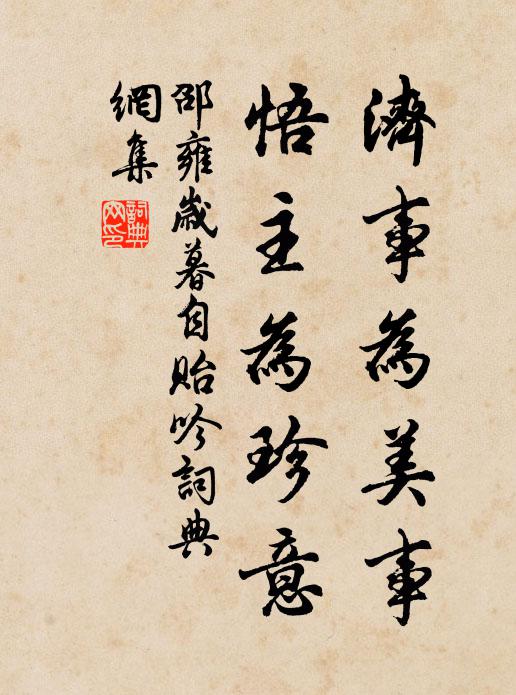 濟事為美事
悟主為珍意
邵雍歲暮自貽吟詞典
網集
詞典
網印